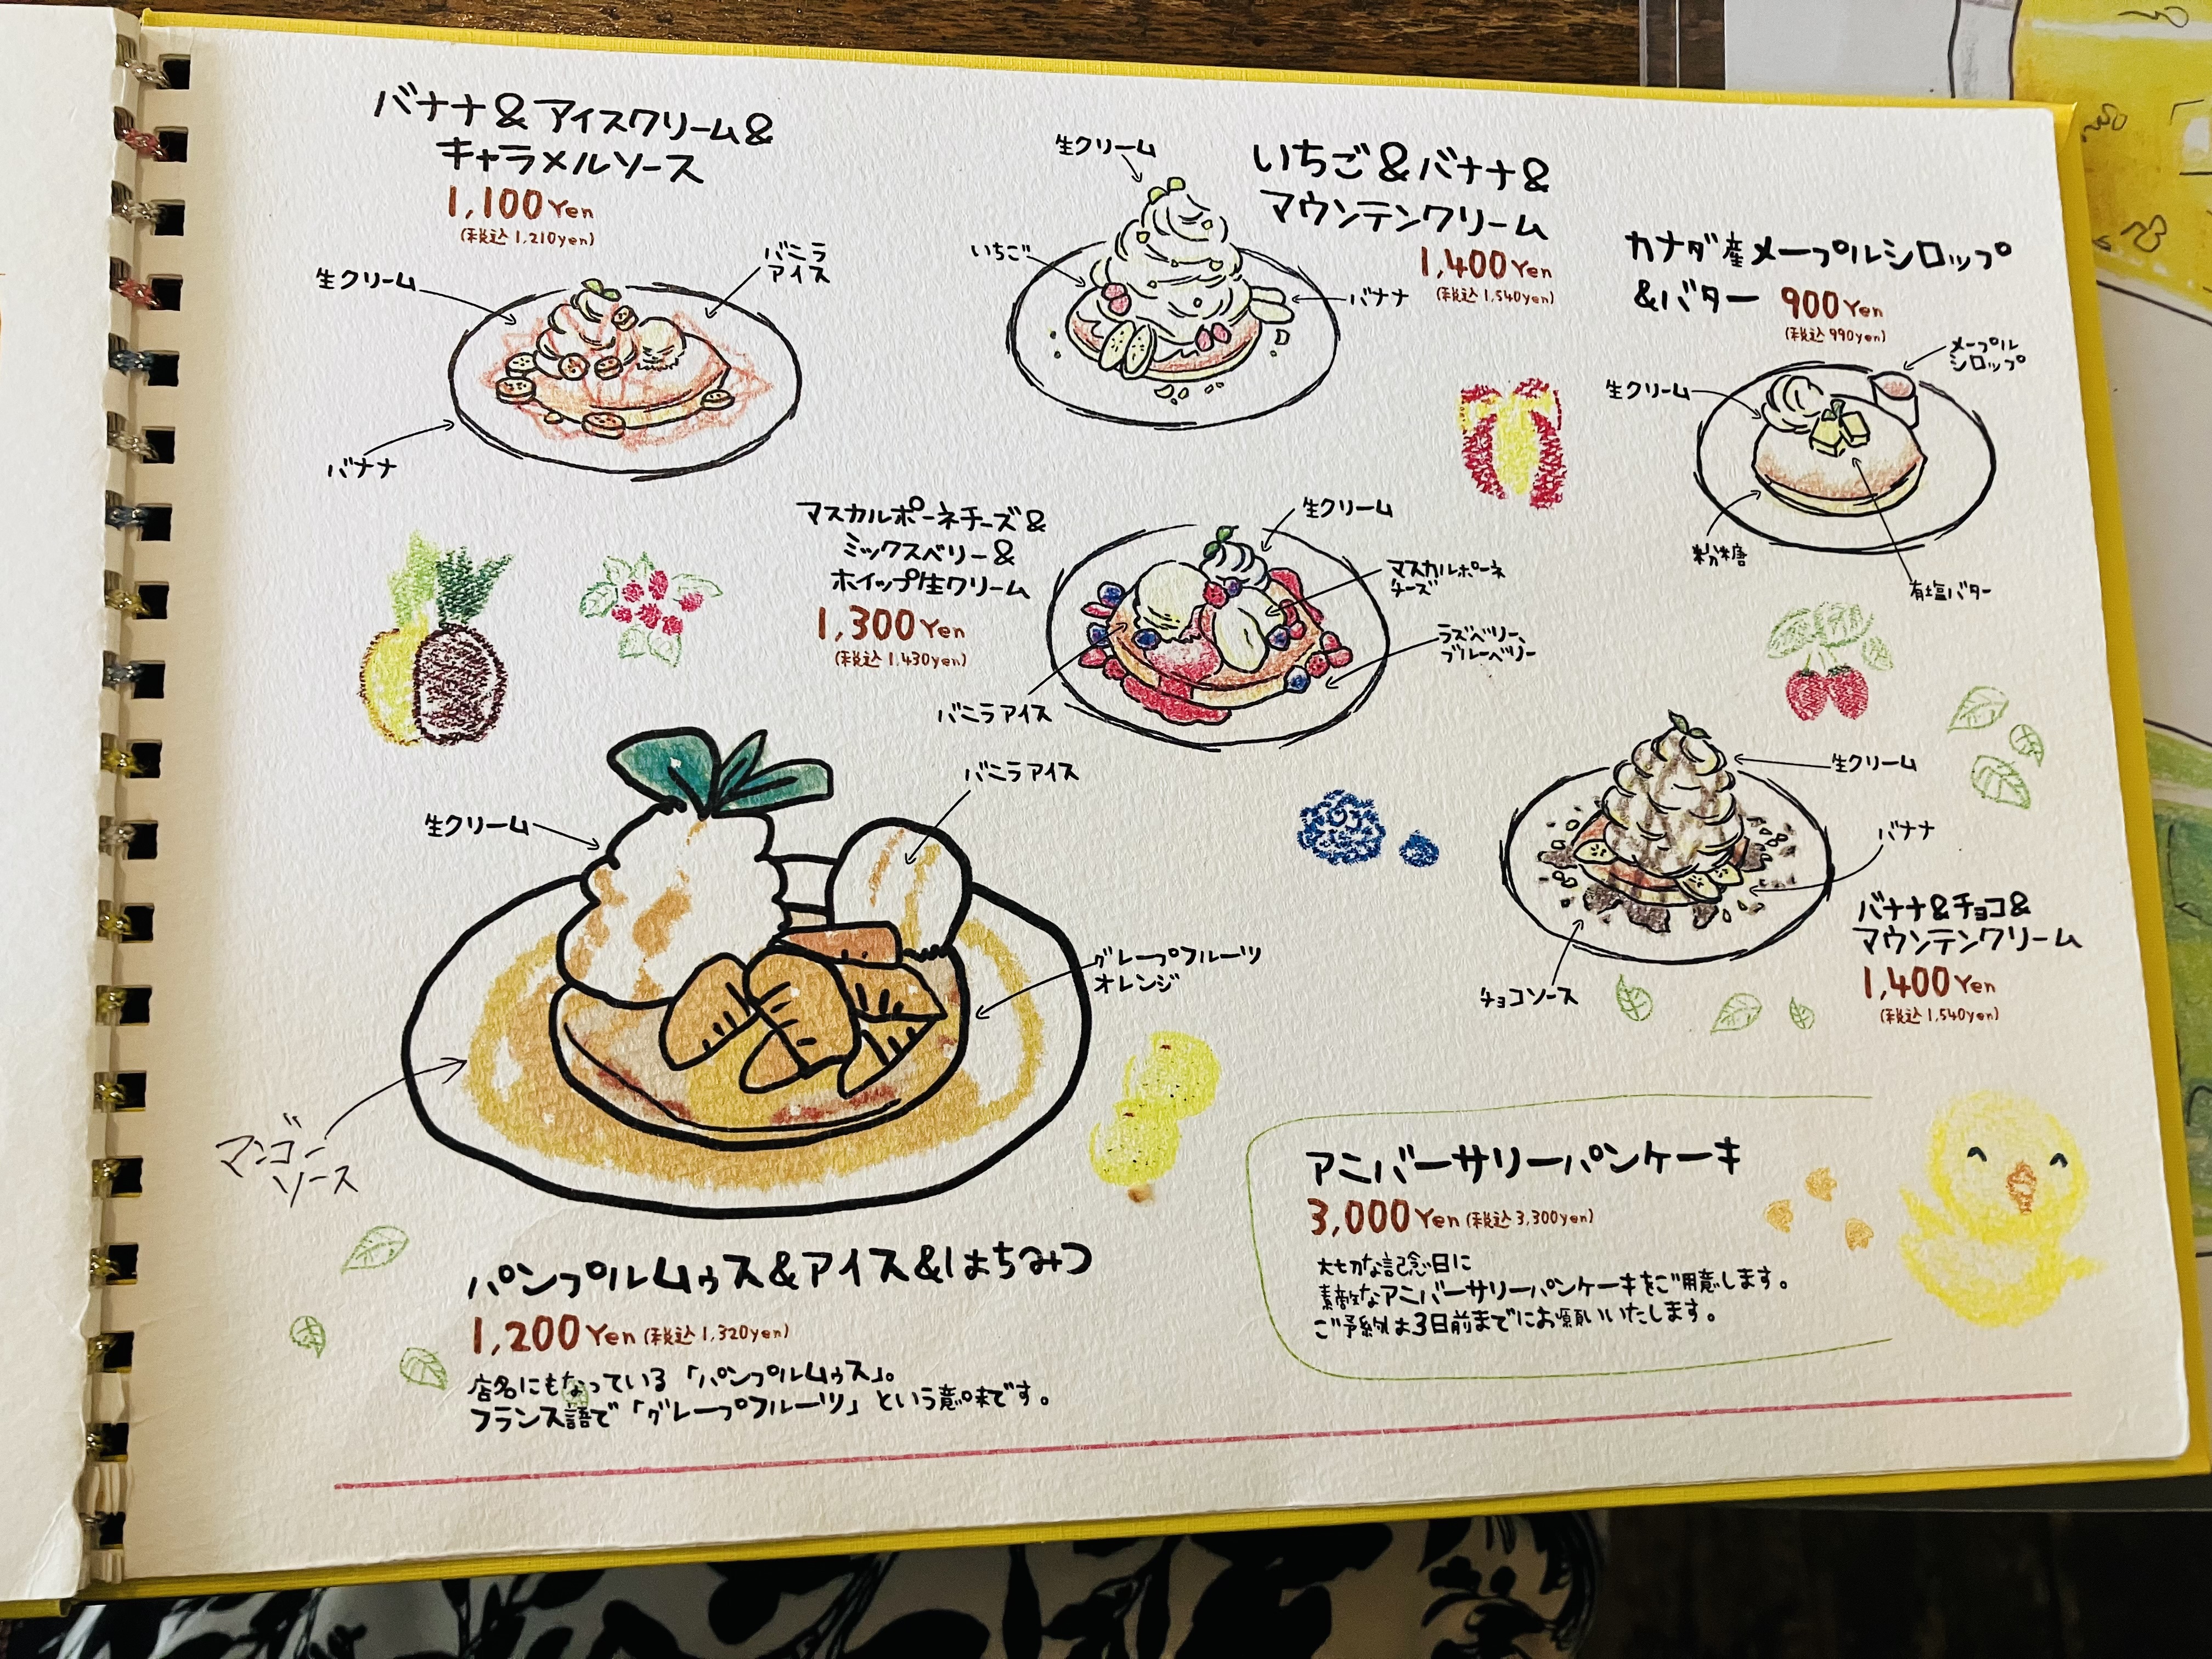 バナナ&アイスクリーム&
キャラメルソース
1,100Yen
(税込1,210yen)
生クリーム
バニラ
アイス
バナナ
生クリーム
いちご
バナナ
いちご&バナナ&
マウンテンクリーム
1,400Yen
(税込1,540yen)
カナダ産メープルシロップ
&バター 900Yen
(税込990yen)
メープル
シロップ
生クリーム
粉糖
有塩バター
マスカルポーネチーズ&
ミックスベリー&
ホイップ生クリーム
1,300Yen
(税込1,430yen)
生クリーム
マスカルポーネ
チーズ
ラズベリー、
ブルーベリー
バニラアイス
生クリーム
バニラアイス
グレープフルーツ
オレンジ
マンゴー
ソース
パンプルムゥス&アイス&はちみつ
1,200Yen (税込1,320yen)
店名にもなっている「パンプルムゥス」。
フランス語で「グレープフルーツ」という意味です。
生クリーム
バナナ
チョコソース
バナナ&チョコ&
マウンテンクリーム
1,400Yen
(税込1,540yen)
アニバーサリーパンケーキ
3,000Yen (税込3,300yen)
大切な記念日に
素敵なアニバーサリーパンケーキをご用意します。
ご予約は3日前までにお願いいたします。